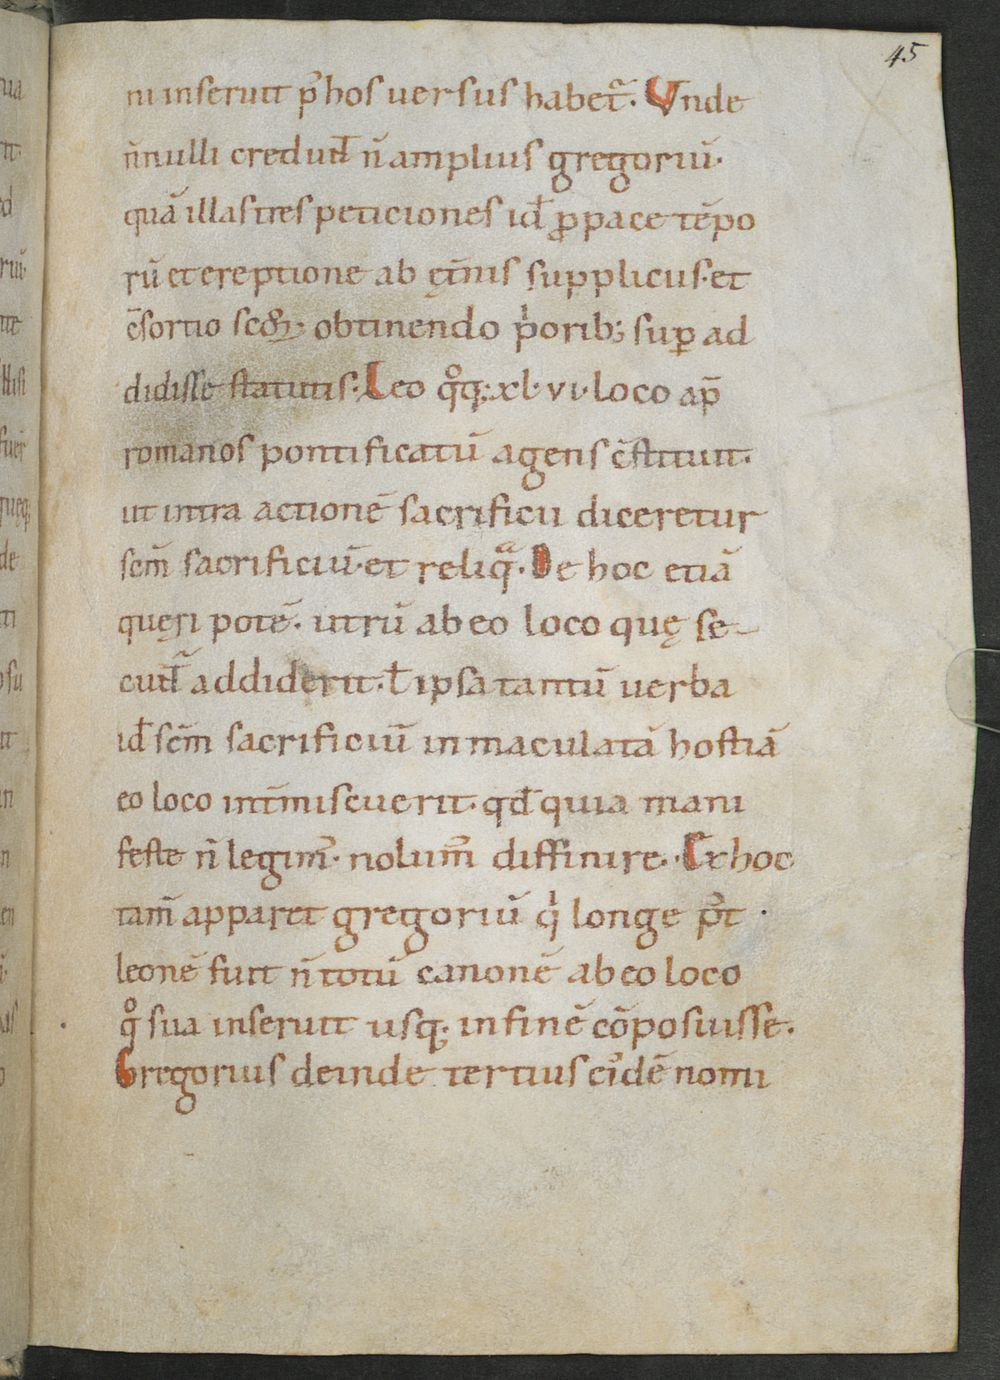 45
ni inseruit p̃ hos uersus habet᷑. Vnde
ñnulli credunt̄ ñ amplius gregoriū.
quā illas tres peticiones id̄ ꝓ pace tēpo
rū et ereptione ab ęt̄nis suppliciis. et
c̄sortio sc̄oꝝ obtinendo p̓orib; suꝑ ad
didisse statutis. Leo qͦq; xl. vi. loco ap̄
romanos pontificatū agens c̄stituit.
ut intra actionē sacrificii diceretur
sc̄m sacrificiū. et reliqᷓ. De hoc etiā
quęri potē. utrū ab eo loco quę se
cunt᷑ addiderit. ł ipsa tantū uerba
id̄ sc̄m sacrificiū inmaculatā hostiā
eo loco int̄miscuerit. qd̄ quia mani
feste ñ legim᷒. nolum᷒ diffinire. Ex hoc
tam̄ apparet gregoriū q̓ longe p᷒t
leonē fuit ñ totū canonē ab eo loco
qͦ sua inseruit usq; in finē cōposuisse.
Gregorius deinde tertius ei᷒dē nomi